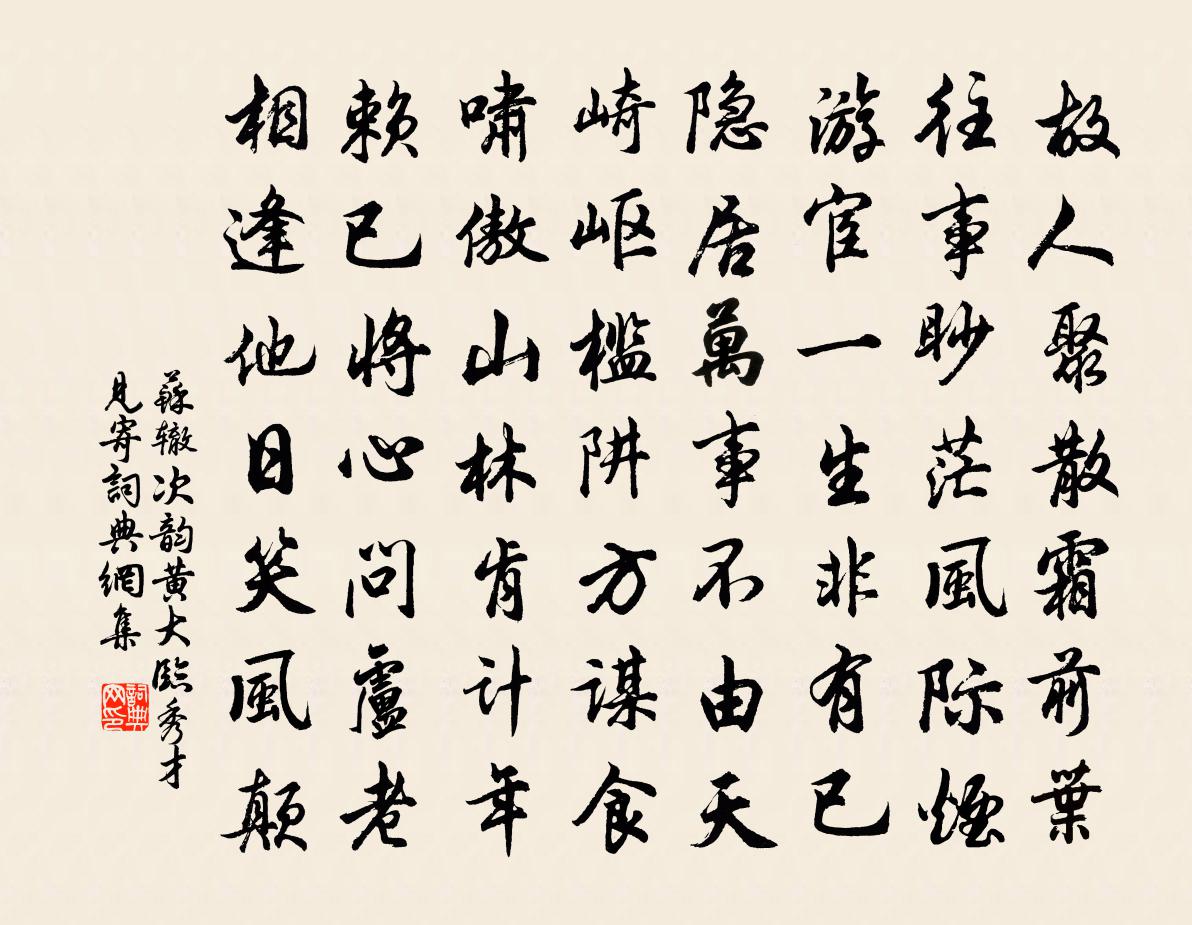 故人聚散霜前葉
往事眇茫風际煙
游宦一生非有已
隐居萬事不由天
崎岖槛阱方谋食
啸傲山林肯计年
赖已将心问盧老
相逢他日笑風颠
蘇辙次韵黄大臨秀才
見寄詞典網集
詞典网印